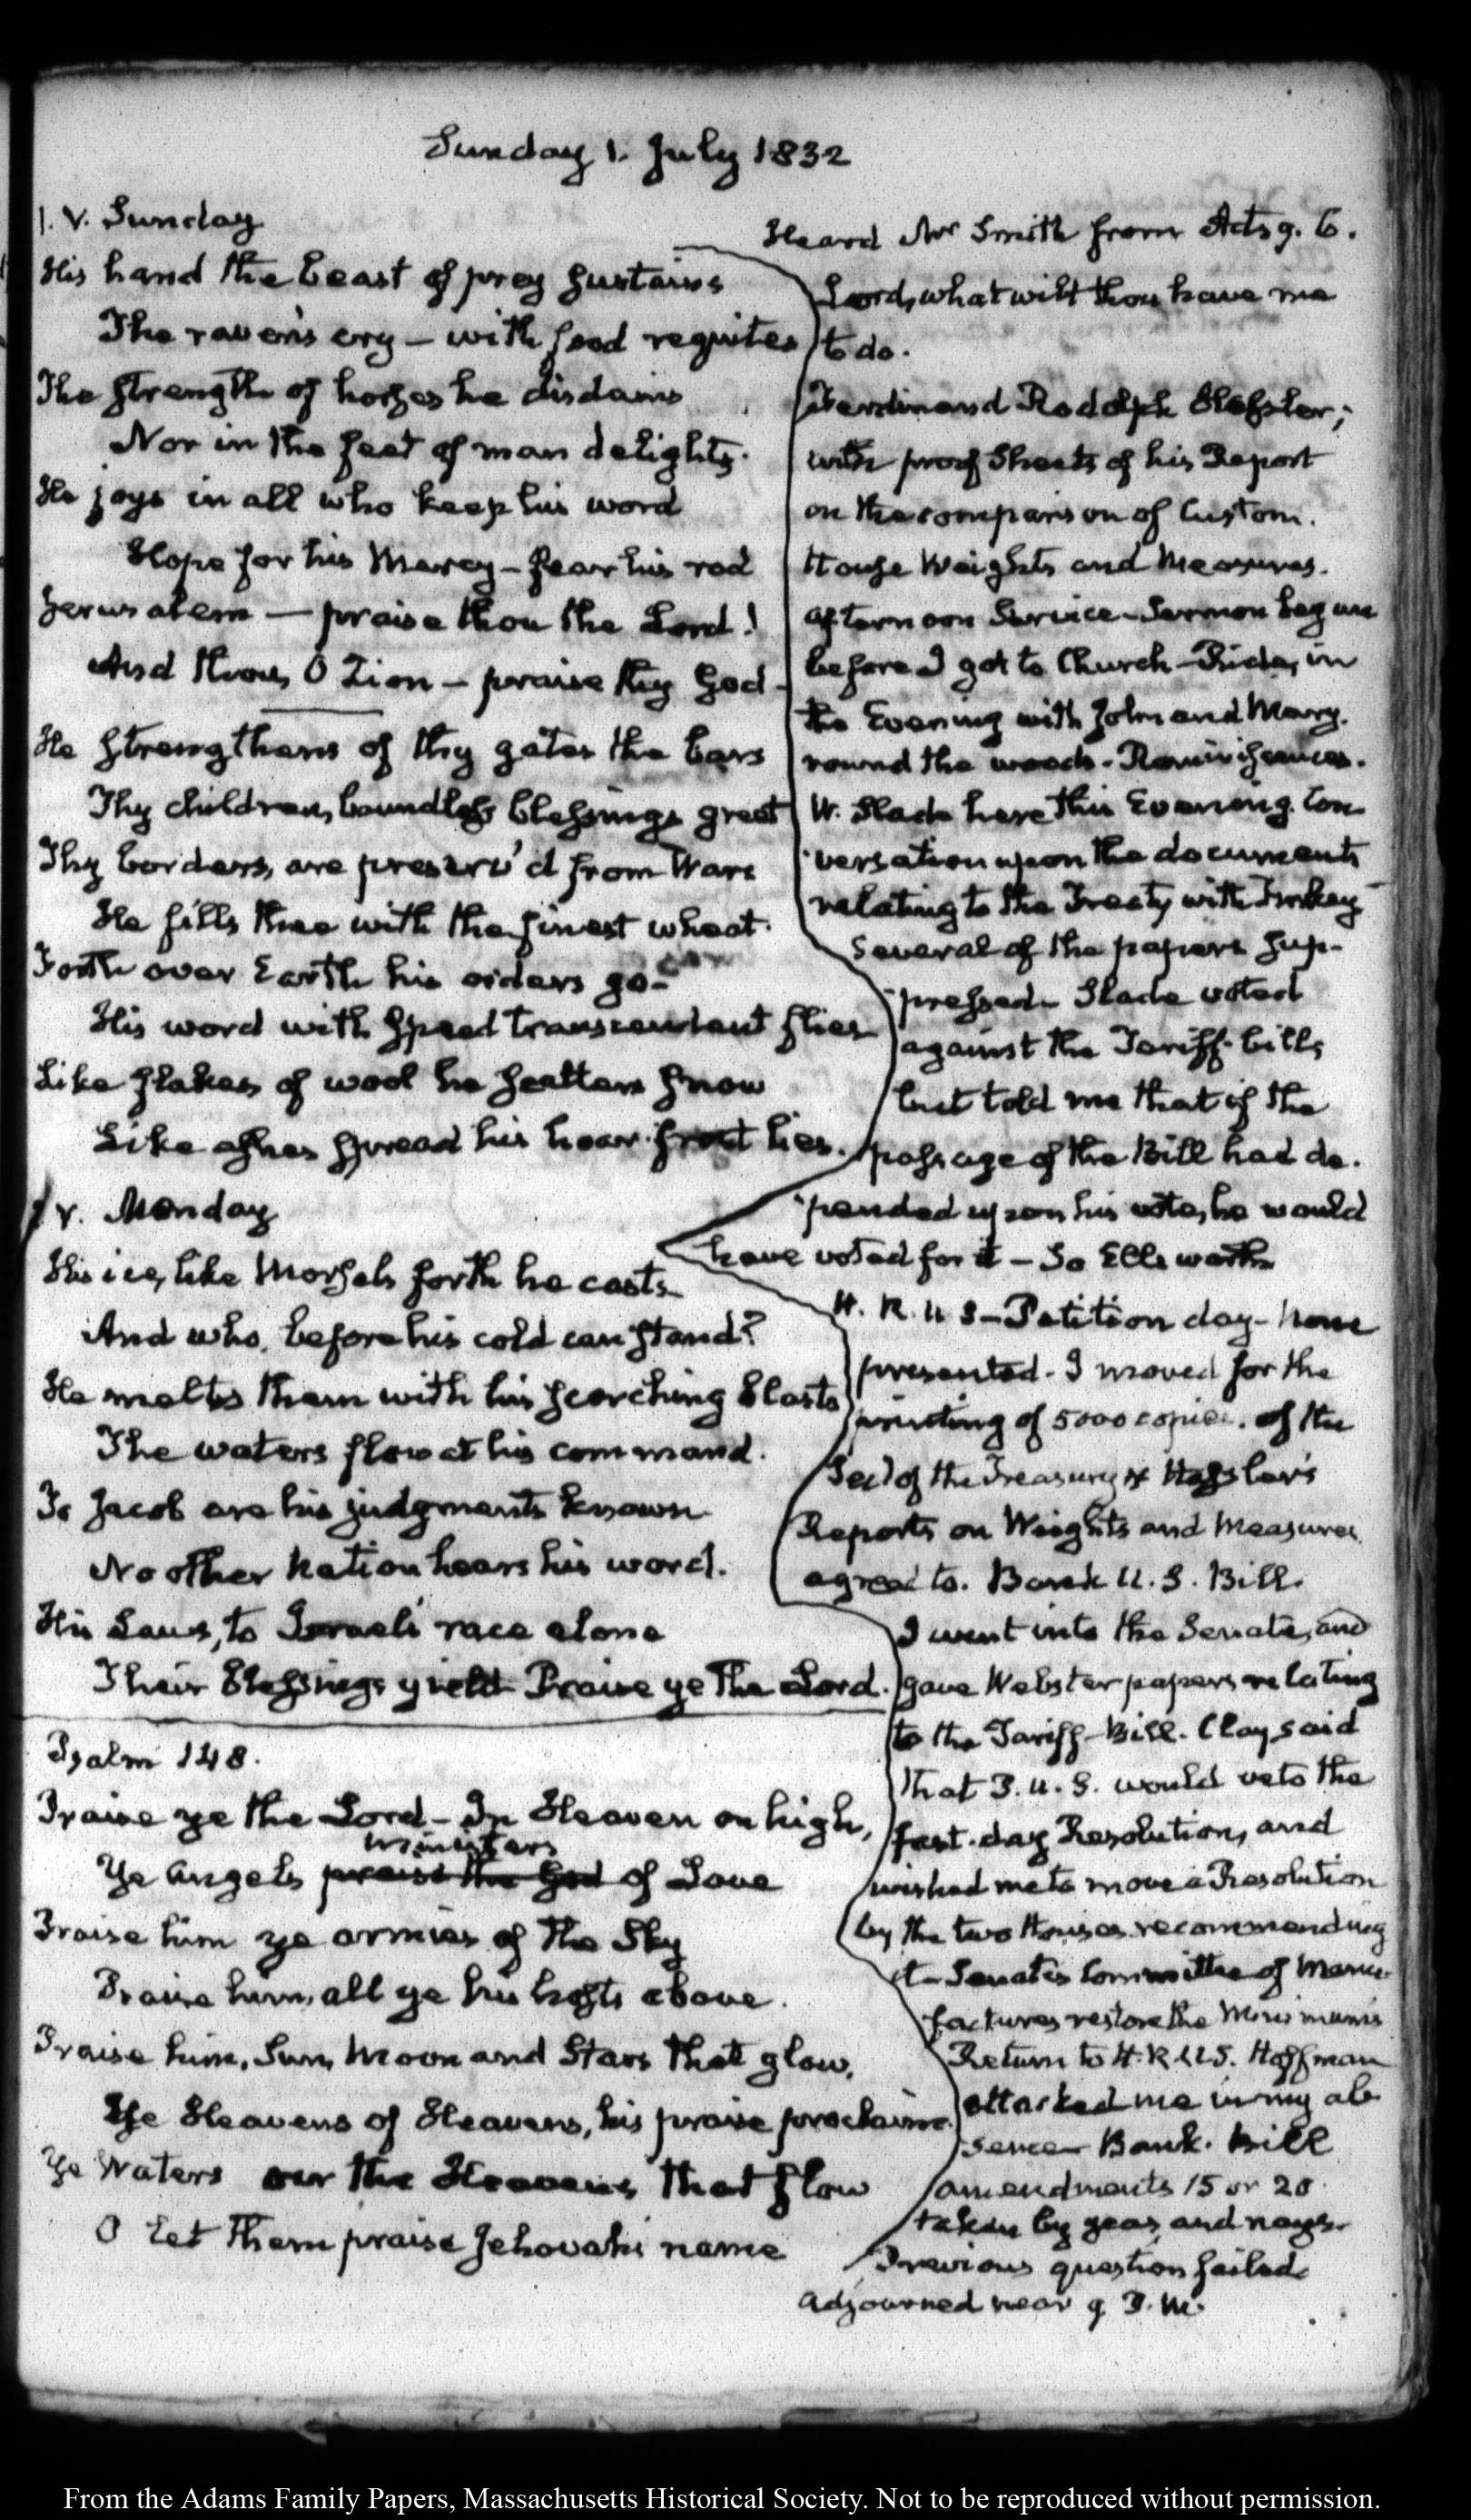 Sunday 1. July 1832
1. V. Sunday
His hand the beast of prey sustains
The raven's cry – with food requites
The strength of horses he disdains
Nor in the feet of man delights.
He joys in all who keep his word
Hope for his Mercy – fear his rod
Jerusalem – praise thou the Lord!
And thou, O Zion – praise thy God –
He strengthens of thy gates the bars
Thy children, boundless blessings greet
Thy borders, are preserv'd from Wars
He fills thee with the finest wheat.
Forth over Earth his orders go –
His word with speed transcendent flies
Like flakes of wool he scatters snow
Like ashes spread his hoar-frost lies.
V. Monday
His ice, like Morsels forth he casts
And who, before his cold can stand?
He melts them with his scorching blasts
The waters flow at his command.
To Jacob are his judgments known
No other Nation hears his word.
His Laws, to Israel's race alone
Their blessings yield Praise ye the Lord.
Psalm 148.
Praise ye the Lord – In Heaven on high,
ministers
Ye Angels praise the God of Love
Praise him ye armies of the Sky
Praise him, all ye his hosts above.
Praise him, Sun, Moon and Stars that glow,
Ye Heavens of Heavens, his praise proclaim
Ye Waters our the Heavens that flow
O let them praise Jehovah's name
Heard Mr Smith from Acts 9. 6.
Lord, what wilt thou have me
to do.
Ferdinand Rodolph Hassler;
with proof Sheets of his Report
on the comparison of Custom.
House Weights and Measures.
Afternoon Service – Sermon begun
before I got to Church – Ride, in
the Evening with John and Mary.
round the woods – Reminiscences.
W. Slade here this Evening. Con
versation upon the documents
relating to the Treaty with Turkey –
Several of the papers sup-
pressed – Slade voted
against the Tariff bill,
but told me that if the
passage of the Bill had de.
pended upon his vote, he would
have voted for it – So Ellsworth
H. R. U S – Petition day – None
presented – I moved for the
printing of 5000 copies. of the
Secy of the Treasury & Hassler's
Reports on Weights and Measures
agreed to. Bank U. S. Bill.
I went into the Senate, and
gave Webster papers relating
to the Tariff – Bill. Clay said
that P. U. S. would veto the
fast-day Resolution, and
wished me to move a Resolution
by the two Houses recommending
it – Senate's Committee of Manu-
factures restore the Minimums
Return to H. R. U S. Hoffman
attacked me in my ab
sence – Bank. Bill
amendments 15 or 20
taken by yeas, and nays.
Previous question failed
adjourned near 9 P. M.
From the Adams Family Papers, Massachusetts Historical Society. Not to be reproduced without permission.